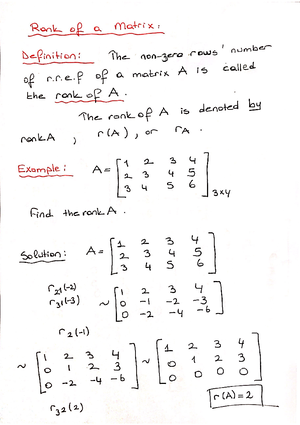 Rank of a Matrix:
Definition: The non-zero rows' number
of r.r.e.f of a matrix A is called
the rank of A.
The rank of A is denoted by
rank A , r(A), or rA.
Example: A = [1 2 3 4
2 3 4 5
3 4 5 6] 3x4
Find the rank A.
Solution: A = [1 2 3 4
2 3 4 5
3 4 5 6]
r21(-2)
r31(-3) ~ [1 2 3 4
0 -1 -2 -3
0 -2 -4 -6]
r2(-1)
~ [1 2 3 4
0 1 2 3
0 -2 -4 -6] ~ [1 2 3 4
0 1 2 3
0 0 0 0]
r32(2)
r(A)=2